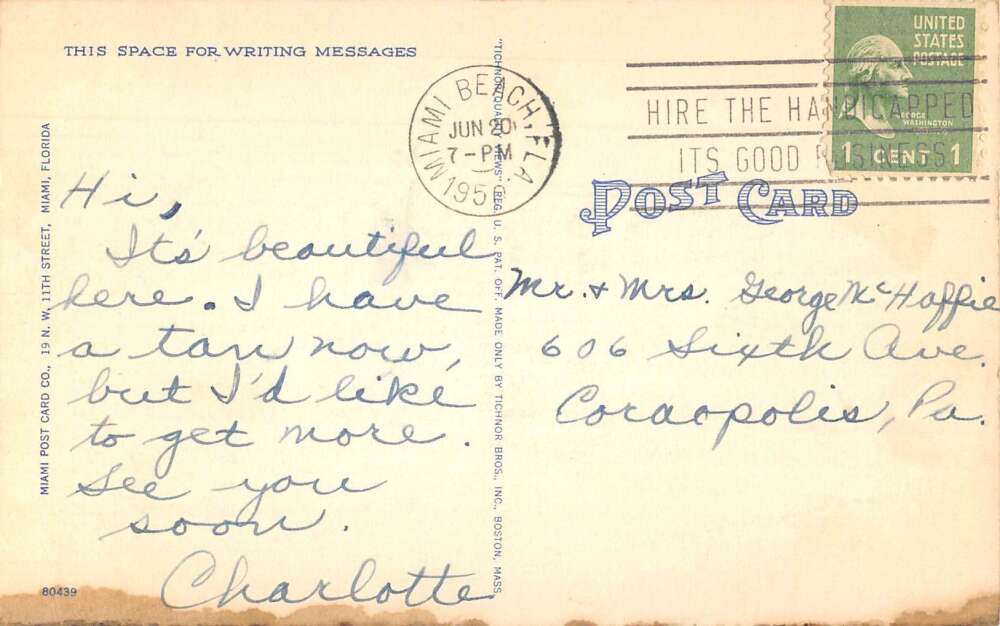 THIS SPACE FOR WRITING MESSAGES
Hi,
It's beautiful
here. I have
a tan now,
but I'd like
to get more.
See you
soon.
Charlotte
80439
MIAMI POST CARD CO., 19 N. W. 11TH STREET, MIAMI, FLORIDA
"TICHNOR QUALITY VIEWS" REG. U. S. PAT. OFF. MADE ONLY BY TICHNOR BROS., INC., BOSTON, MASS.
MIAMI BEACH, FLA.
JUN 20
7-PM
HIRE THE HANDICAPPED
ITS GOOD BUSINESS
UNITED
STATES
POSTAGE
GEORGE
WASHINGTON
1 CENT 1
POST CARD
Mr. & Mrs. George McHaffie
606 Sixth Ave.
Coraopolis, Pa.